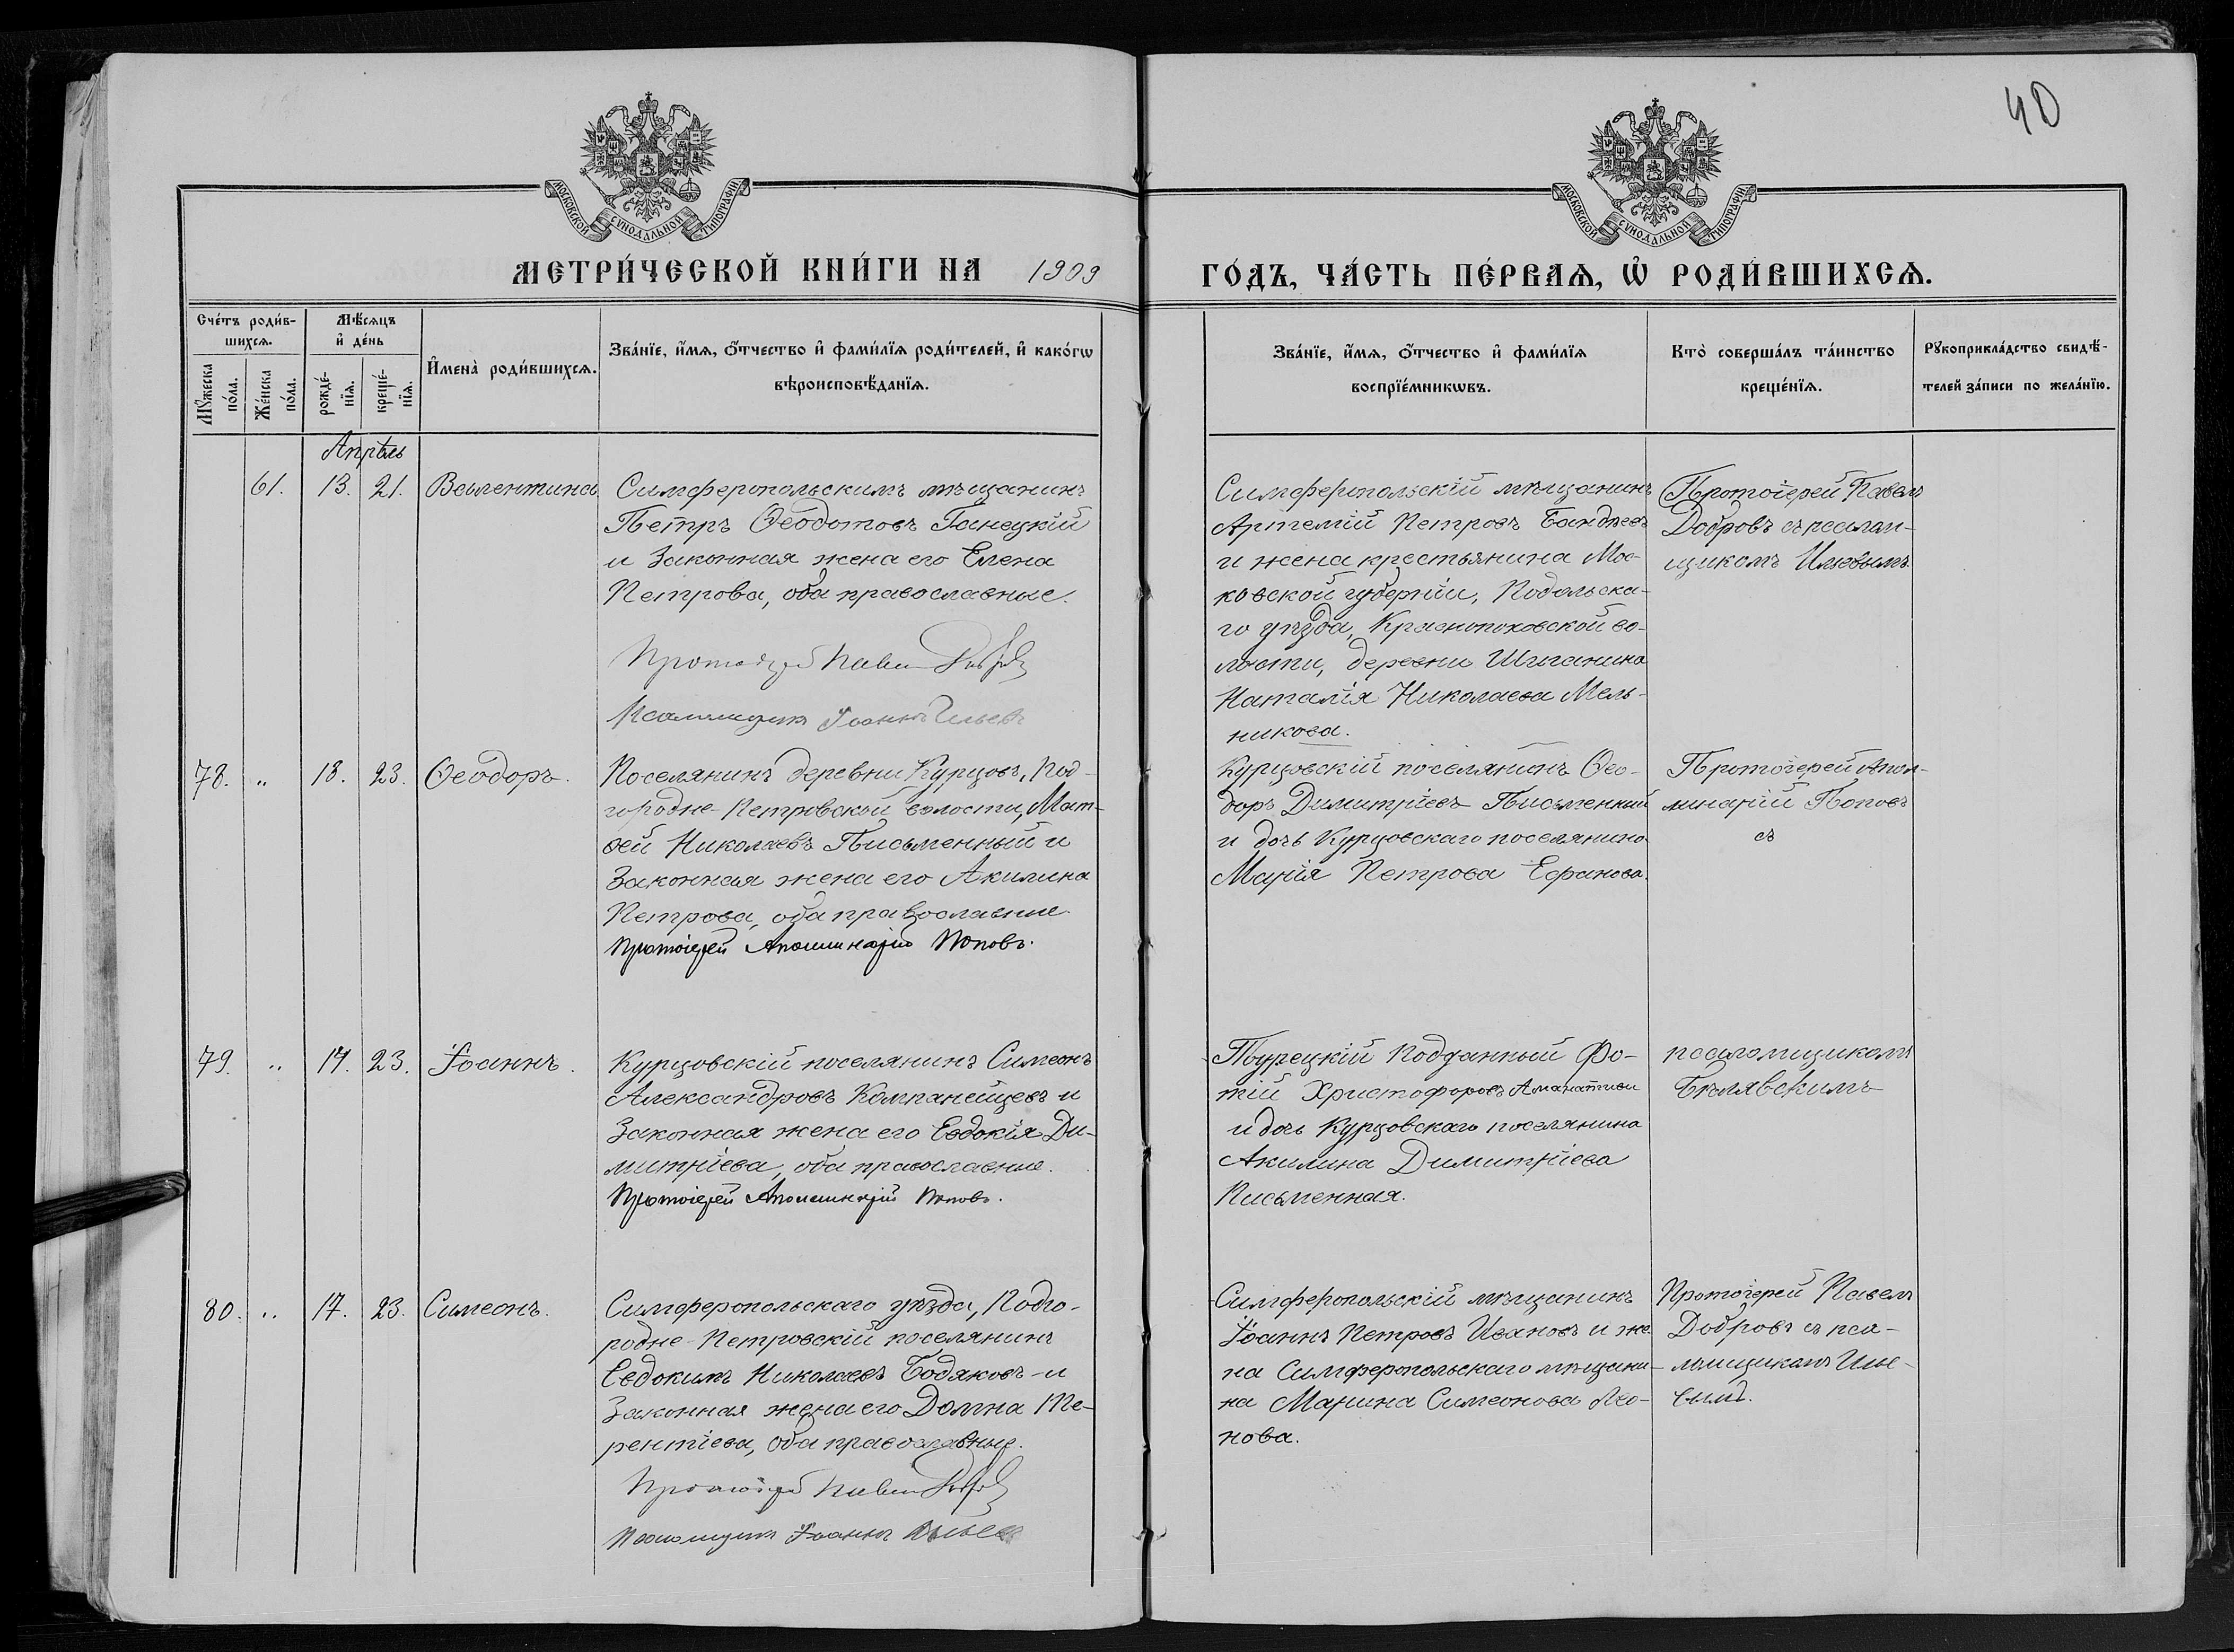 40
МОСКОВСКОЙ СѴНОДАЛЬНОЙ ТИПОГРАФІИ
МОСКОВСКОЙ СѴНОДАЛЬНОЙ ТИПОГРАФІИ
МЕТРИ́ЧЕСКОЙ КНИ́ГИ НА 1909
ГО́ДЪ, ЧА́СТЬ ПЕ́РВАѦ, Ѡ҆ РОДИ́ВШИХСѦ.
Сче́тъ роди́в-
шихсѧ.
Мꙋ́жеска по́ла.
Же́нска по́ла.
Мѣ́сѧцъ
и҆ де́нь
рожде́-
нїѧ.
креще́-
нїѧ.
И҆мена̀ роди́вшихсѧ.
Зва́нїе, и҆́мѧ, ѻ҆́тчество и҆ фами́лїѧ роди́телей, и҆ како́гѡ
вѣроисповѣ́данїѧ.
Зва́нїе, и҆́мѧ, ѻ҆́тчество и҆ фами́лїѧ
воспрїе́мникѡвъ.
Кто̀ соверша́лъ та́инство
креще́нїѧ.
Рꙋкоприкла́дство свидѣ́-
телей за́писи по жела́нїю.
Апрѣль
61. 13. 21. Валентина
Симферопольскимъ мѣщанинъ
Петръ Ѳеодотовъ Ганецкій
и законная жена его Елена
Петрова, оба православные.
Протоіерей Павелъ Добровъ
Псаломщикъ Іоаннъ Ильевъ
Симферопольскій мѣщанинъ
Артемій Петровъ
и жена крестьянина Мос-
ковской губерніи, Подольска-
го уѣзда, Краснопаховской во-
лости, деревни
Наталія Николаева Мель-
никова.
Протоіерей Павелъ
Добровъ съ псалом-
щикомъ Ильевымъ
78. " 18. 23. Ѳеодоръ.
Поселянинъ деревни Курцовъ, Под-
городне-Петровской волости, Мат-
ѳей Николаевъ Письменный и
законная жена его Акилина
Петрова, оба православные
Протоіерей Аполлинарій Поповъ.
Курцовскій поселянинъ Ѳео-
доръ Димитріевъ Письменный
и дочь Курцовскаго поселянина
Марія Петрова Ефанова.
Протоіерей Апол-
линарій Поповъ
съ
79. " 19. 23. Іоаннъ.
Курцовскій поселянинъ Симеонъ
Александровъ Компанейцевъ и
законная жена его Евдокія Ди-
митріева, оба православные.
Протоіерей Аполлинарій Поповъ.
Турецкій подданный Фо-
тій Христофоровъ
и дочь Курцовскаго поселянина
Акилина Димитріева
Письменная.
псаломщикомъ
Бѣлявскимъ
80. " 17. 23. Симеонъ.
Симферопольскаго уѣзда, Подго-
родне-Петровскій поселянинъ
Евдокимъ Николаевъ Бодяковъ и
законная жена его Домна Те-
рентіева, оба православные.
Протоіерей Павелъ Добровъ
Псаломщикъ Іоаннъ Ильевъ
Симферопольскій мѣщанинъ
Іоаннъ Петровъ Ивановъ и же-
на Симферопольскаго мѣщани-
на Марина Симеонова Лео-
нова.
Протоіерей Павелъ
Добровъ съ пса-
ломщикомъ Илье-
вымъ.